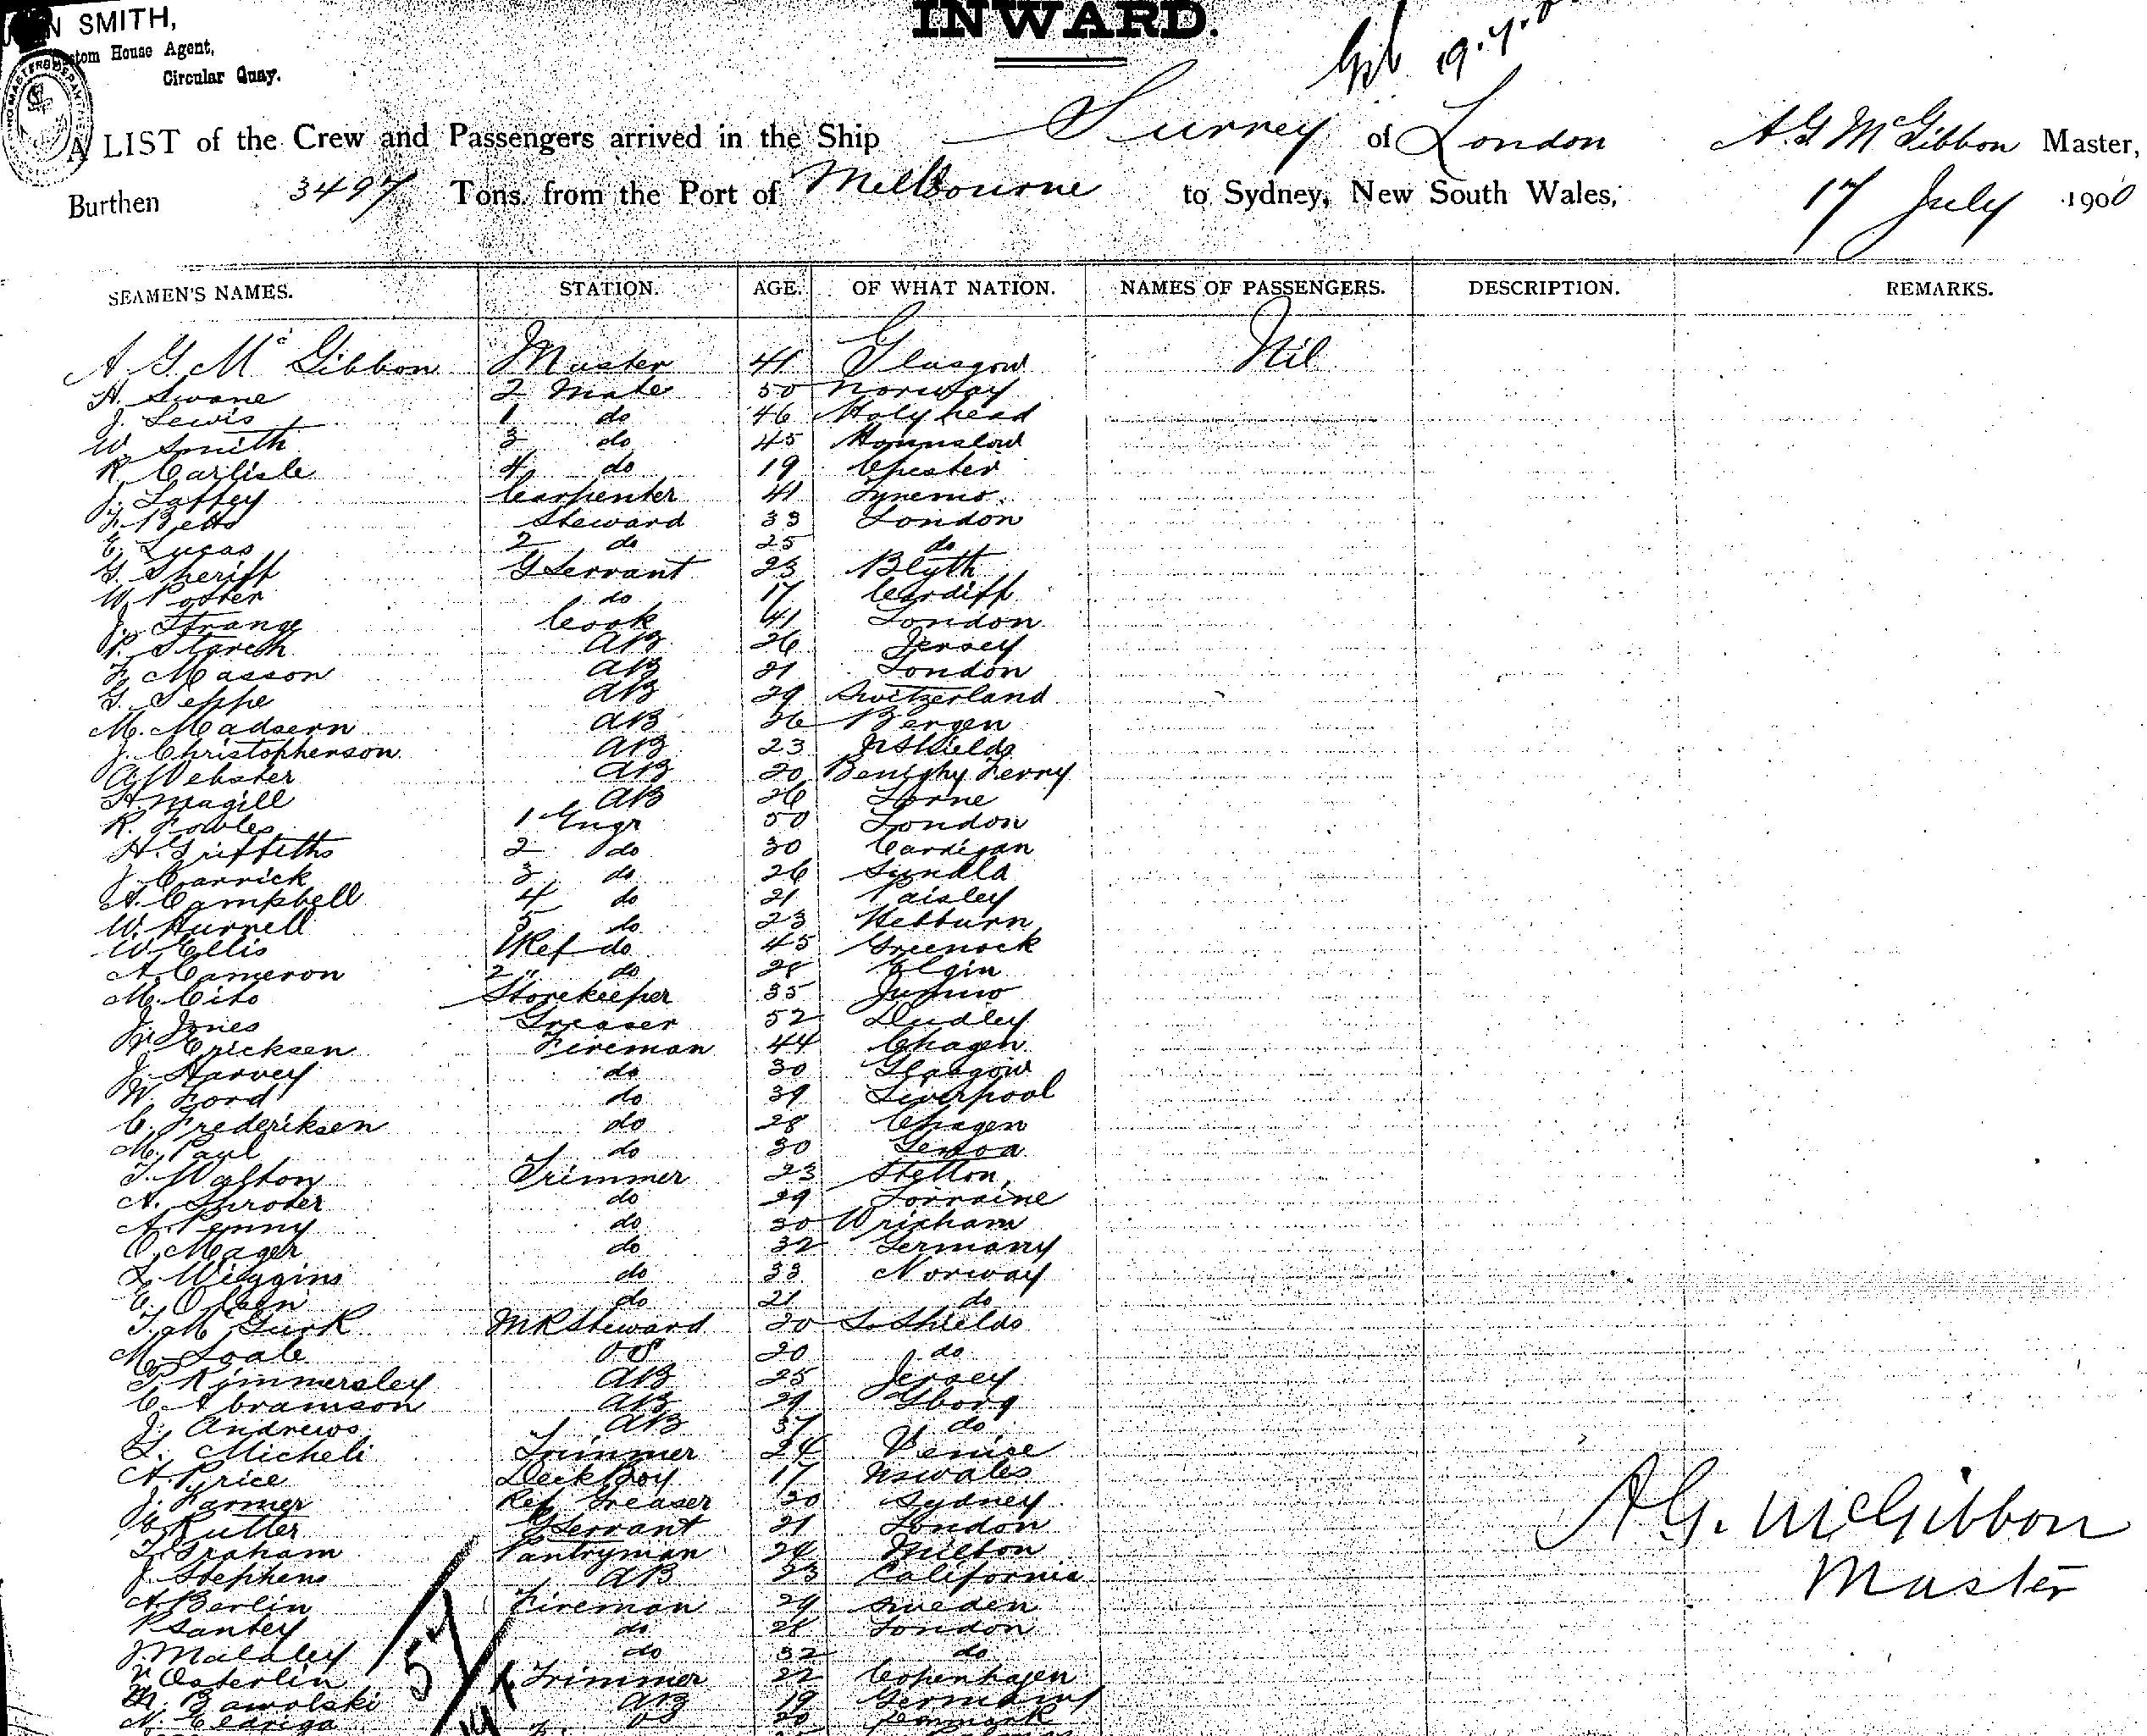 SMITH,
INWARD.
Custom House Agent,
Circular Quay.
A LIST of the Crew and Passengers arrived in the Ship Surrey of London A. G. McGibbon Master,
Burthen 3497 Tons, from the Port of Melbourne to Sydney, New South Wales, 17 July 1900
SEAMEN'S NAMES. STATION. AGE. OF WHAT NATION. NAMES OF PASSENGERS. DESCRIPTION. REMARKS.
A G McGibbon Master 41 Glasgow Nil
H. Swane 2 Mate 50 Norway
J. Lewis 1 do 46 Holyhead
W. Smith 3 do 45 Hounslow
R. Carlisle 4 do 19 Chester
J. Laffey Carpenter 41 Tynemo.
F. Betts Steward 33 London
E. Lucas 2 do 25 do
G. Sheriff G Servant 23 Blyth
W. Poster do 17 Cardiff
J. Strange Cook 41 London
P. Starck AB 26 Jersey
F. Masson AB 21 London
G. Seppe AB 29 Switzerland
M. Madsern AB 26 Bergen
J. Christopherson AB 23 N Shields
A. Webster AB 20 Ferry
H. Magill AB 26 Lorne
R. Fowles 1 Engr 50 London
H. Griffeths 2 do 30 Cardigan
J. Carrick 3 do 26 Sundld
A. Campbell 4 do 21 Paisley
W. Hurrell 5 do 23 Hebburn
W. Ellis 1 Ref do 45 Greenock
A. Cameron 2 " do 28 Elgin
M. Cito Storekeeper 35
J. Jones Greaser 52 Dudley
Ericksen Fireman 44 Chagen
J. Harvey do 30 Glasgow
W. Ford do 39 Liverpool
C. Frederiksen do 28 Chagen
M. Paul do 30 Genoa
T. Walton Trimmer 23 Stetton
A. Suroder do 29 Lorraine
A. Penny do 30 Wrixham
O. Mager do 32 Germany
L. Wiggins do 33 Norway
C. Olsen do 21 do
T. McGurk MR Steward 20 So Shields
M. Soale OS 20 do
P. Kimmersley AB 25 Jersey
C. Abramson AB 29 Gborg
J. Andrews AB 37 do
L. Micheli Trimmer 24 Venice
A. Price Deck Boy 17 Nswales
J. Farmer Ref Greaser 30 Sydney
E. Rutter G Servant 21 London
T. Graham Pantryman 24 Milton
J. Stephens AB 23 California
A. Berlin Fireman 29 Sweden
P Santey do 28 London
J. Malaley do 32 do
V. Osterlin Trimmer 22 Copenhagen
Bawolski AB 19 Germany
N. 20 Denmark
A G. McGibbon
Master
57